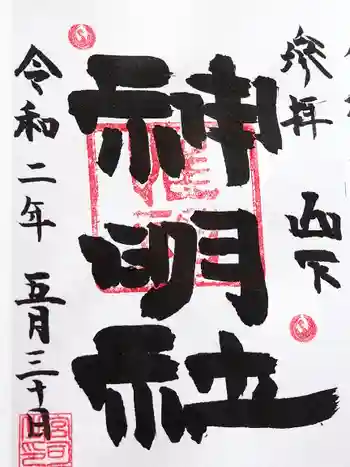 参拝
山下
神明社
令和二年 五月三十日